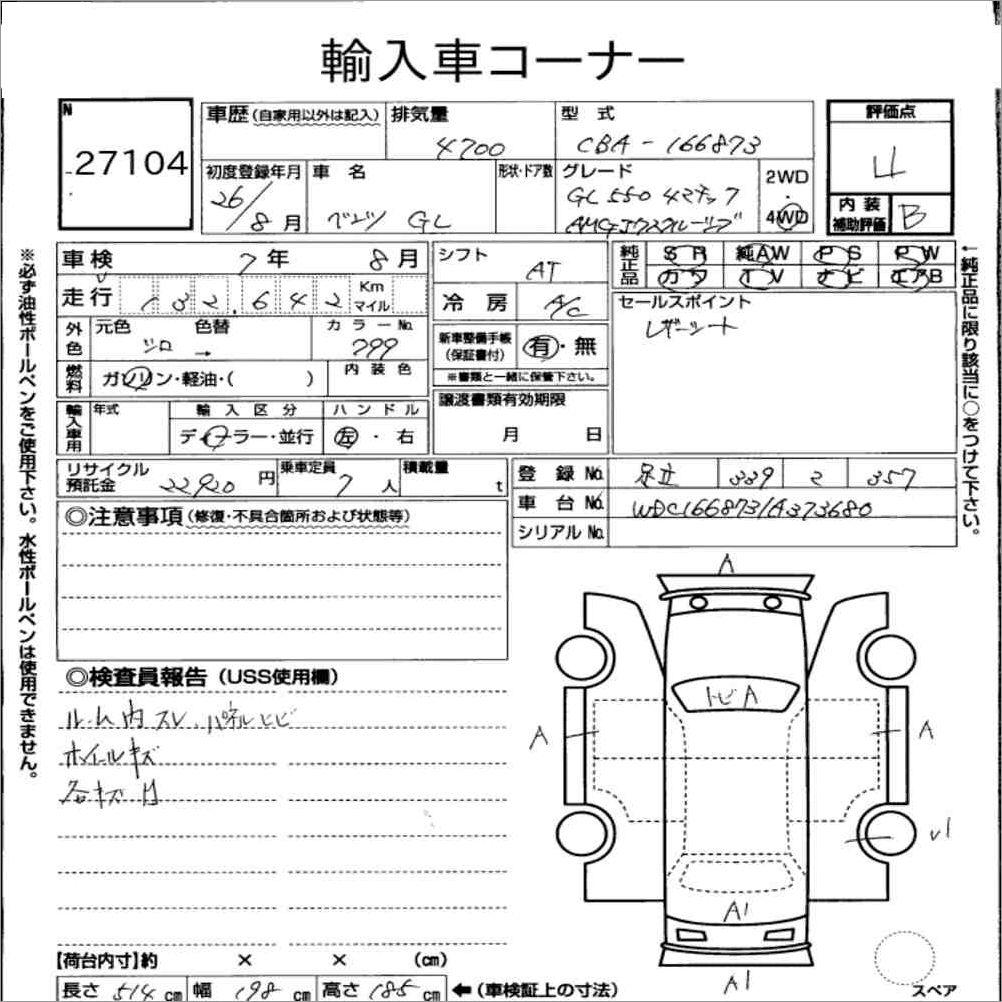 輸入車コーナー
N
27104
車歴(自家用以外は記入)
排気量
4700
型式
CBA-166873
評価点
4
初度登録年月
26/8月
車名
ベンツ GL
形状・ドア数
グレード
GL550 4マチック
AMGエクスクルーシブ
2WD
・
4WD
内装
補助評価
B
車検 7年 8月
走行 132,642 Km
マイル
シフト
AT
冷房
A/C
純正品
SR 純AW PS PW
カワ TV ナビ エアB
セールスポイント
レザーシート
外色
元色 色替
シロ →
カラーNo.
799
燃料
ガソリン・軽油・( )
内装色
新車整備手帳
(保証書付)
有・無
※書類と一緒に保管下さい。
輸入車用
年式
輸入区分
ディーラー・並行
ハンドル
左・右
譲渡書類有効期限
月 日
リサイクル
預託金
22920円
乗車定員
7人
積載量
t
登録No.
足立 339 2 357
車台No.
WDC1668731A373680
シリアルNo.
◎注意事項(修復・不具合箇所および状態等)
◎検査員報告(USS使用欄)
ルーム内スレ、パネルヒビ
ホイールキズ
各キズ凹
A
トビA
A
A
V1
A1
A1
スペア
【荷台内寸】約 × × (cm)
長さ 514 cm 幅 198 cm 高さ 185 cm ←(車検証上の寸法)
※必ず油性ボールペンをご使用下さい。水性ボールペンは使用できません。
←純正品に限り該当に○をつけて下さい。